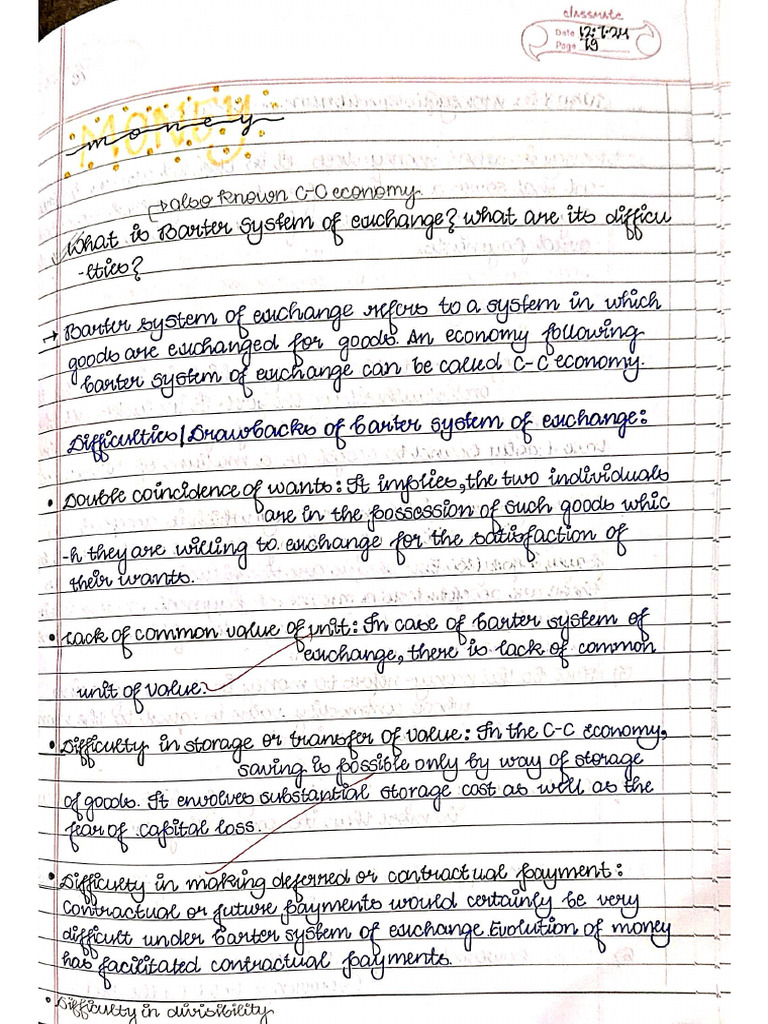 classmate
Date 12.7.24
Page 19
MONEY
money
→also known C-C economy
What is Barter system of exchange? What are its difficu
-lties?
→ Barter system of exchange refers to a system in which
goods are exchanged for goods. An economy following
barter system of exchange can be called C-C economy.
Difficulties/Drawbacks of barter system of exchange:
• Double coincidence of wants: It implies, the two individuals
are in the possession of such goods whic
-h they are willing to exchange for the satisfaction of
their wants.
• Lack of common value of unit: In case of barter system of
exchange, there is lack of common
unit of value.
• Difficulty in storage or transfer of value: In the C-C economy,
saving is possible only by way of storage
of goods. It envolves substantial storage cost as well as the
fear of capital loss.
• Difficulty in making deferred or contractual payment:
Contractual or future payments would certainly be very
difficult under barter system of exchange. Evolution of money
has facilitated contractual payments.
• Difficulty in divisibility